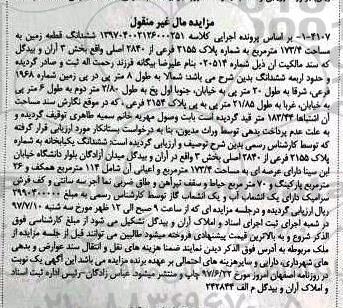 مزایده مال غیر منقول
۱-۴۱۰۷- بر اساس پرونده اجرایی کلاسه ۱۳۹۷۰۴۰۰۲۱۲۶۰۰۰۲۵۱ ششدانگ قطعه زمین به
مساحت ۱۷۳/۴ مترمربع به شماره پلاک ۲۱۵۵ فرعی از ۲۸۴۰ اصلی واقع بخش ۳ آران و بیدگل
که سند مالکیت آن ذیل شماره ۰۲۰۵۱۴ بنام علیرضا بیگانه فرزند رحمت اله ثبت و صادر گردیده
و حدود اربعه ششدانگ بدین شرح می باشد: شمالا به طول ۸ متر پی در پی زمین شماره ۱۹۶۸
فرعی، شرقا به طول ۲۰ متر پی به خیابان، جنوبا اول پخ به طول ۲/۸۰ متر دوم به طول ۶ متر پی
به خیابان، غربا به طول ۲۱/۸۵ متر پی به پی پلاک ۲۱۵۴ فرعی ، که در موقع نگارش سند مساحت
آن اشتباها ۱۸۲/۴۴ متر قید گردیده است بابت وصول مهریه خانم سمیه طاهری توقیف گردیده و
به علت عدم پرداخت بدهی توسط وراث مدیون، بنا به درخواست بستانکار مورد ارزیابی قرار گرفته
که توسط کارشناس رسمی بدین شرح توصیف و ارزیابی گردیده است: ششدانگ یکبابخانه به شماره
پلاک ۲۱۵۵ فرعی از ۲۸۴۰ اصلی بخش ۳ واقع در آران و بیدگل میدان آزادگان بلوار دانشگاه خیابان
ابن سینا دارای عرصه ای به مساحت ۱۷۳/۴ مترمربع و اعیانی آن شامل ۱۱۴ مترمربع همکف و ۲۶
مترمربع پارکینگ و ۷۰ متر مربع حیاط و سقف تیرآهن و طاق ضربی نما آجر سه سانتی و کف فرش
سرامیک دارای یک انشعاب آب و یک انشعاب گاز توسط کارشناس رسمی به مبلغ
ریال ارزیابی گردیده و درجلسه مزایده ای که از ساعت ۹ صبح الی ۱۲ ظهر مورخ سه شنبه ۹۷/۷/۱۰
در شعبه اجرای ثبت اجرای اسناد و املاک آران و بیدگل تشکیل می شود از مبلغ کارشناسی فوق
الذکر شروع و به بالاترین قیمت پیشنهادی فروخته میشود طالبین می توانند قبل از جلسه مزایده از
ملک مربوطه به آدرس فوق الذکر دیدن نمایند ضمنا هزینه های نقل و انتقال سند عوارض و بدهی
های شهرداری، دارای و سایرهزینه های احتمالی بر عهده برنده مزایده می باشد این آگهی یک نوبت
در روزنامه اصفهان امروز مورخ ۹۷/۶/۲۲ چاپ و منتشر میشود. عباس زادگان -رئیس اداره ثبت اسناد
و املاک آران و بیدگل م الف ۲۴۲۸۴۴